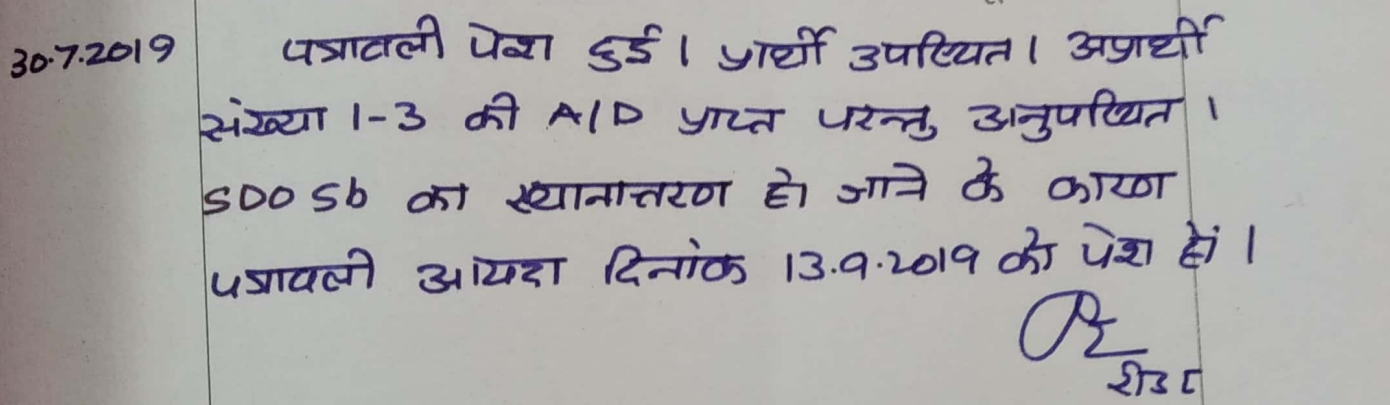 30.7.2019 पत्रावली पेश हुई। प्रार्थी उपस्थित। अप्रार्थी
संख्या 1-3 की A/D प्राप्त परन्तु अनुपस्थित।
SDO Sb का स्थानान्तरण हो जाने के कारण
पत्रावली आयंदा दिनांक 13.9.2019 को पेश हों।